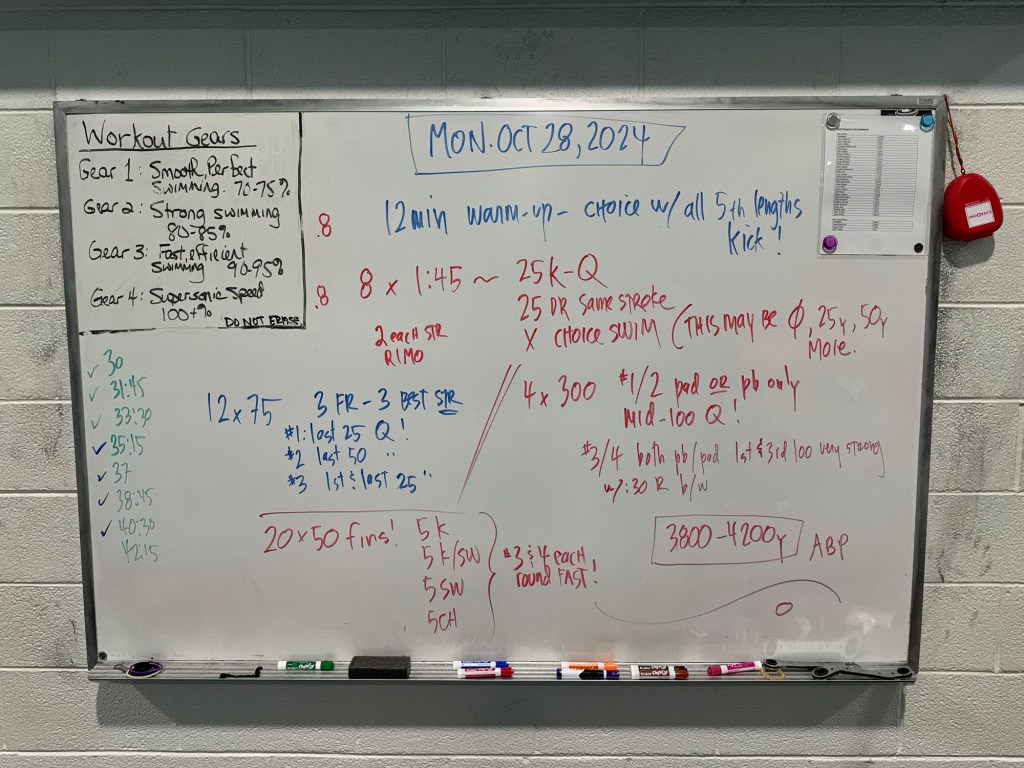 Workout Gears
Gear 1: Smooth, Perfect
Swimming. 70-75%
Gear 2: Strong swimming
80-85%
Gear 3: Fast, efficient
Swimming 90-95%
Gear 4: Supersonic Speed
100+%
DO NOT ERASE
MON. OCT 28, 2024
.8
12 min warm-up - choice w/ all 5th lengths
Kick!
.8
8 x 1:45 ~ 25K-Q
25 DR same stroke
X choice swim (This may be Ø, 25y, 50y
More.
2 each STR
RIMO
30
31:45
33:30
35:15
37
38:45
40:30
42:15
12 x 75 3 FR - 3 BEST STR
#1: last 25 Q!
#2 last 50 "
#3 1st & last 25 "
4 x 300 #1/2 pad or pb only
Mid-100 Q!
#3/4 both pb/pad 1st & 3rd 100 very strong
w/:30 R b/w
20 x 50 fins! 5 K
5 K/SW
5 SW
5 CH
#3 & 4 each
round FAST!
3800-4200y ABP